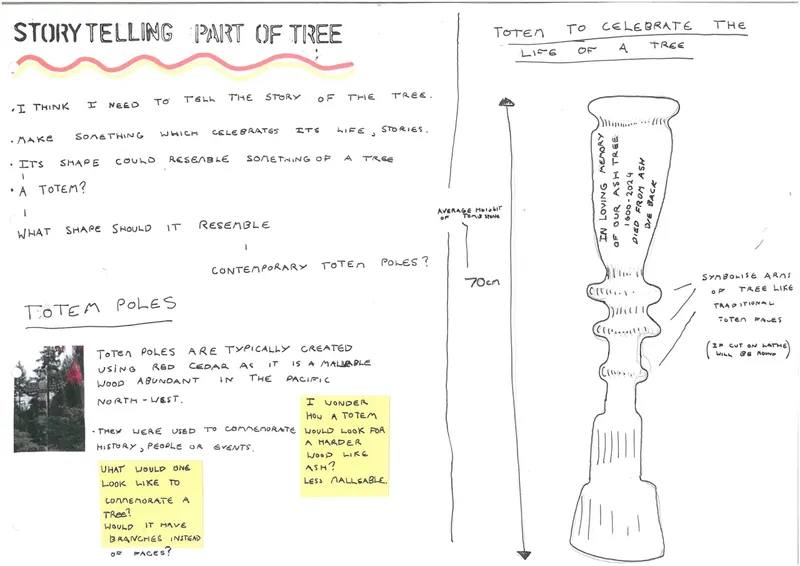 STORYTELLING PART OF TREE
• I THINK I NEED TO TELL THE STORY OF THE TREE.
• MAKE SOMETHING WHICH CELEBRATES ITS LIFE, STORIES.
• ITS SHAPE COULD RESEMBLE SOMETHING OF A TREE
• A TOTEM?
WHAT SHAPE SHOULD IT RESEMBLE
CONTEMPORARY TOTEM POLES?
TOTEM POLES
TOTEM POLES ARE TYPICALLY CREATED
USING RED CEDAR AS IT IS A MALLEABLE
WOOD ABUNDANT IN THE PACIFIC
NORTH-WEST.
• THEY WERE USED TO COMMEMORATE
HISTORY, PEOPLE OR EVENTS.
WHAT WOULD ONE
LOOK LIKE TO
COMMEMORATE A
TREE?
WOULD IT HAVE
BRANCHES INSTEAD
OF FACES?
I WONDER
HOW A TOTEM
WOULD LOOK FOR
A HARDER
WOOD LIKE
ASH?
LESS MALLEABLE.
TOTEM TO CELEBRATE THE
LIFE OF A TREE
AVERAGE HEIGHT
OF TOMBSTONE
70cm
IN LOVING MEMORY
OF OUR ASH TREE
1600-2024
DIED FROM ASH
DIE BACK
SYMBOLISE ARMS
OF TREE LIKE
TRADITIONAL
TOTEM FACES
(IF CUT ON LATHE
WILL BE ROUND)